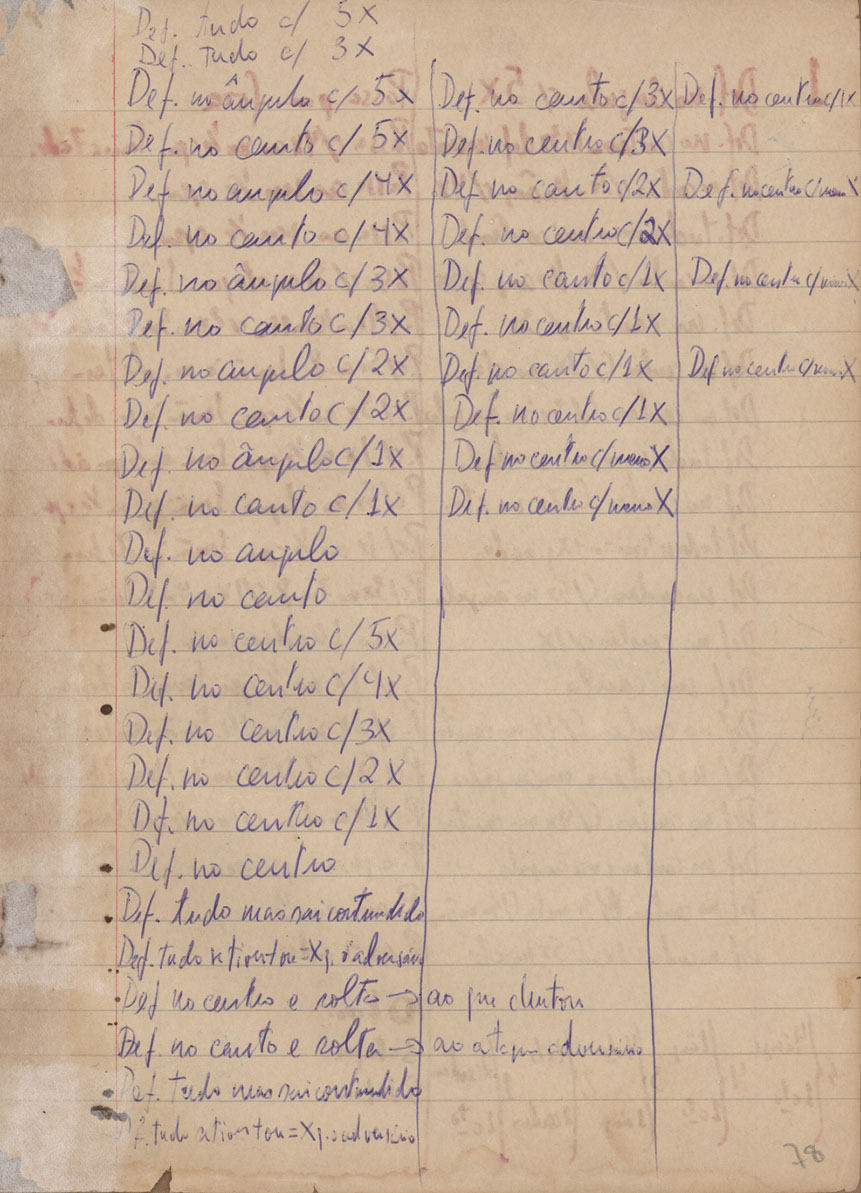 Def. tudo c/ 5X
Def. Tudo c/ 3X
Def. no ângulo c/ 5X Def. no canto c/3X Def. no centro c/1X
Def. no canto c/ 5X Def. no centro c/3X
Def. no angulo c/4X Def. no canto c/2X Def. no centro c/menos X
Def. no canto c/4X Def. no centro c/2X
Def. no ângulo c/3X Def. no canto c/1X Def. no centro c/menos X
Def. no canto c/3X Def. no centro c/1X
Def. no angulo c/2X Def. no canto c/1X Def no centro c/menos X
Def. no canto c/2X Def. no centro c/1X
Def. no ângulo c/1X Def no centro c/menos X
Def. no canto c/1X Def. no centro c/menos X
Def. no angulo
Def. no canto
Def. no centro c/ 5X
Def. no centro c/4X
Def. no centro c/3X
Def. no centro c/2X
Def. no centro c/1X
Def. no centro
Def. tudo mas sai contundido
Def. tudo se tiver = X p. o adversário
Def no centro e solta → ao que chutou
Def. no canto e solta → ao ataque adversário
Def. tudo mas sai contundido
Def. tudo se tiver = X p. o adversário
78